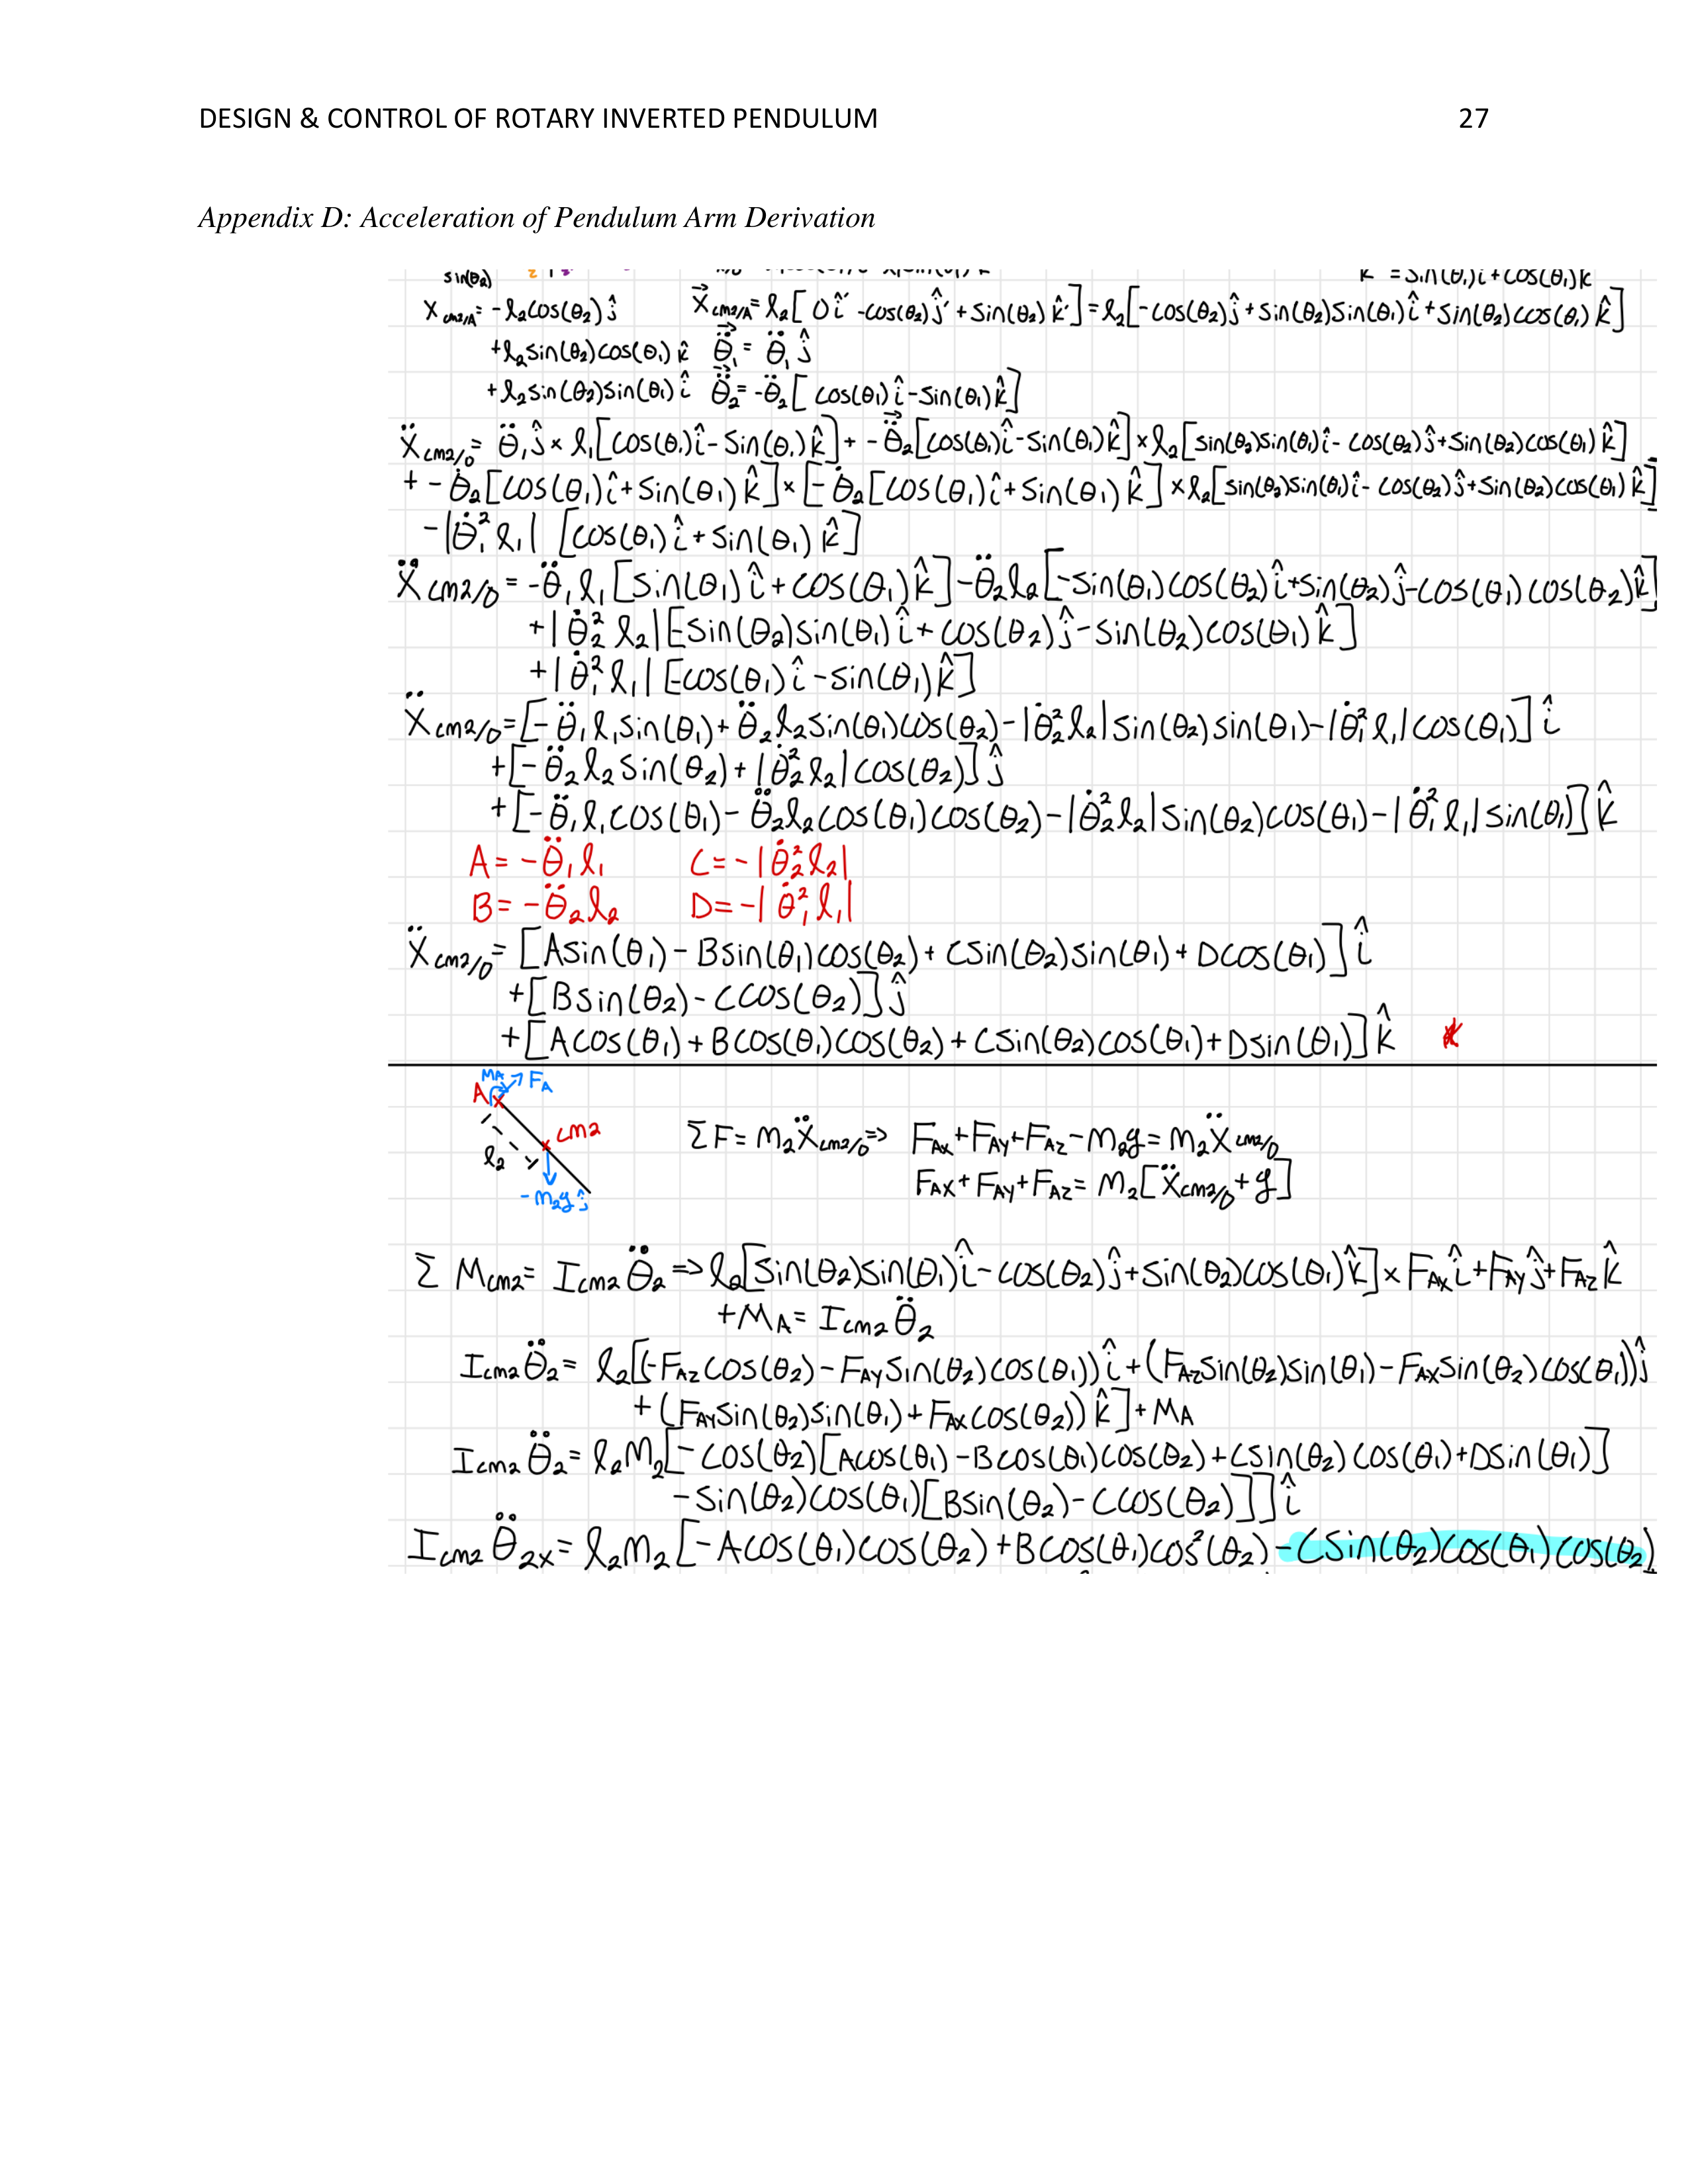 DESIGN & CONTROL OF ROTARY INVERTED PENDULUM 27
Appendix D: Acceleration of Pendulum Arm Derivation
sin(θ₂)
k̂' = sin(θ₁)î + cos(θ₁)k̂
X_cm2/A = -l₂cos(θ₂)ĵ X⃗_cm2/A = l₂[0î' - cos(θ₂)ĵ' + sin(θ₂)k̂'] = l₂[-cos(θ₂)ĵ + sin(θ₂)sin(θ₁)î + sin(θ₂)cos(θ₁)k̂]
+l₂sin(θ₂)cos(θ₁)k̂ θ̈⃗₁ = θ̈₁ĵ
+l₂sin(θ₂)sin(θ₁)î θ̈⃗₂ = -θ̈₂[cos(θ₁)î - sin(θ₁)k̂]
Ẍ_cm2/0 = θ̈₁ĵ × l₁[cos(θ₁)î - sin(θ₁)k̂] + -θ̈⃗₂[cos(θ₁)î - sin(θ₁)k̂] × l₂[sin(θ₂)sin(θ₁)î - cos(θ₂)ĵ + sin(θ₂)cos(θ₁)k̂]
+ -θ̇₂[cos(θ₁)î + sin(θ₁)k̂] × [-θ̇₂[cos(θ₁)î + sin(θ₁)k̂] × l₂[sin(θ₂)sin(θ₁)î - cos(θ₂)ĵ + sin(θ₂)cos(θ₁)k̂]
-|θ̇₁²l₁| [cos(θ₁)î + sin(θ₁)k̂]
Ẍ_cm2/0 = -θ̈₁l₁[sin(θ₁)î + cos(θ₁)k̂] - θ̈₂l₂[-sin(θ₁)cos(θ₂)î + sin(θ₂)ĵ - cos(θ₁)cos(θ₂)k̂]
+|θ̇₂²l₂|[-sin(θ₂)sin(θ₁)î + cos(θ₂)ĵ - sin(θ₂)cos(θ₁)k̂]
+|θ̇₁²l₁|[-cos(θ₁)î - sin(θ₁)k̂]
Ẍ_cm2/0 = [-θ̈₁l₁sin(θ₁) + θ̈₂l₂sin(θ₁)cos(θ₂) - |θ̇₂²l₂|sin(θ₂)sin(θ₁) - |θ̇₁²l₁|cos(θ₁)]î
+[-θ̈₂l₂sin(θ₂) + |θ̇₂²l₂|cos(θ₂)]ĵ
+[-θ̈₁l₁cos(θ₁) - θ̈₂l₂cos(θ₁)cos(θ₂) - |θ̇₂²l₂|sin(θ₂)cos(θ₁) - |θ̇₁²l₁|sin(θ₁)]k̂
A = -θ̈₁l₁ C = -|θ̇₂²l₂|
B = -θ̈₂l₂ D = -|θ̇₁²l₁|
Ẍ_cm2/0 = [Asin(θ₁) - Bsin(θ₁)cos(θ₂) + Csin(θ₂)sin(θ₁) + Dcos(θ₁)]î
+[Bsin(θ₂) - Ccos(θ₂)]ĵ
+[Acos(θ₁) + Bcos(θ₁)cos(θ₂) + Csin(θ₂)cos(θ₁) + Dsin(θ₁)]k̂ *
M_A F_A
A
cm2
l₂
-m₂gĵ
ΣF = m₂Ẍ_cm2/0 => F_AX + F_AY + F_AZ - m₂g = m₂Ẍ_cm2/0
F_AX + F_AY + F_AZ = m₂[Ẍ_cm2/0 + g]
ΣM_cm2 = I_cm2 θ̈₂ => l₂[sin(θ₂)sin(θ₁)î - cos(θ₂)ĵ + sin(θ₂)cos(θ₁)k̂] × F_AX î + F_AY ĵ + F_AZ k̂
+M_A = I_cm2 θ̈₂
I_cm2 θ̈₂ = l₂[(-F_AZ cos(θ₂) - F_AY sin(θ₂)cos(θ₁))î + (F_AZ sin(θ₂)sin(θ₁) - F_AX sin(θ₂)cos(θ₁))ĵ
+ (F_AY sin(θ₂)sin(θ₁) + F_AX cos(θ₂))k̂] + M_A
I_cm2 θ̈₂ = l₂m₂[-cos(θ₂)[Acos(θ₁) - Bcos(θ₁)cos(θ₂) + Csin(θ₂)cos(θ₁) + Dsin(θ₁)]
-sin(θ₂)cos(θ₁)[Bsin(θ₂) - Ccos(θ₂)]]î
I_cm2 θ̈₂ₓ = l₂m₂[-Acos(θ₁)cos(θ₂) + Bcos(θ₁)cos²(θ₂) - Csin(θ₂)cos(θ₁)cos(θ₂)